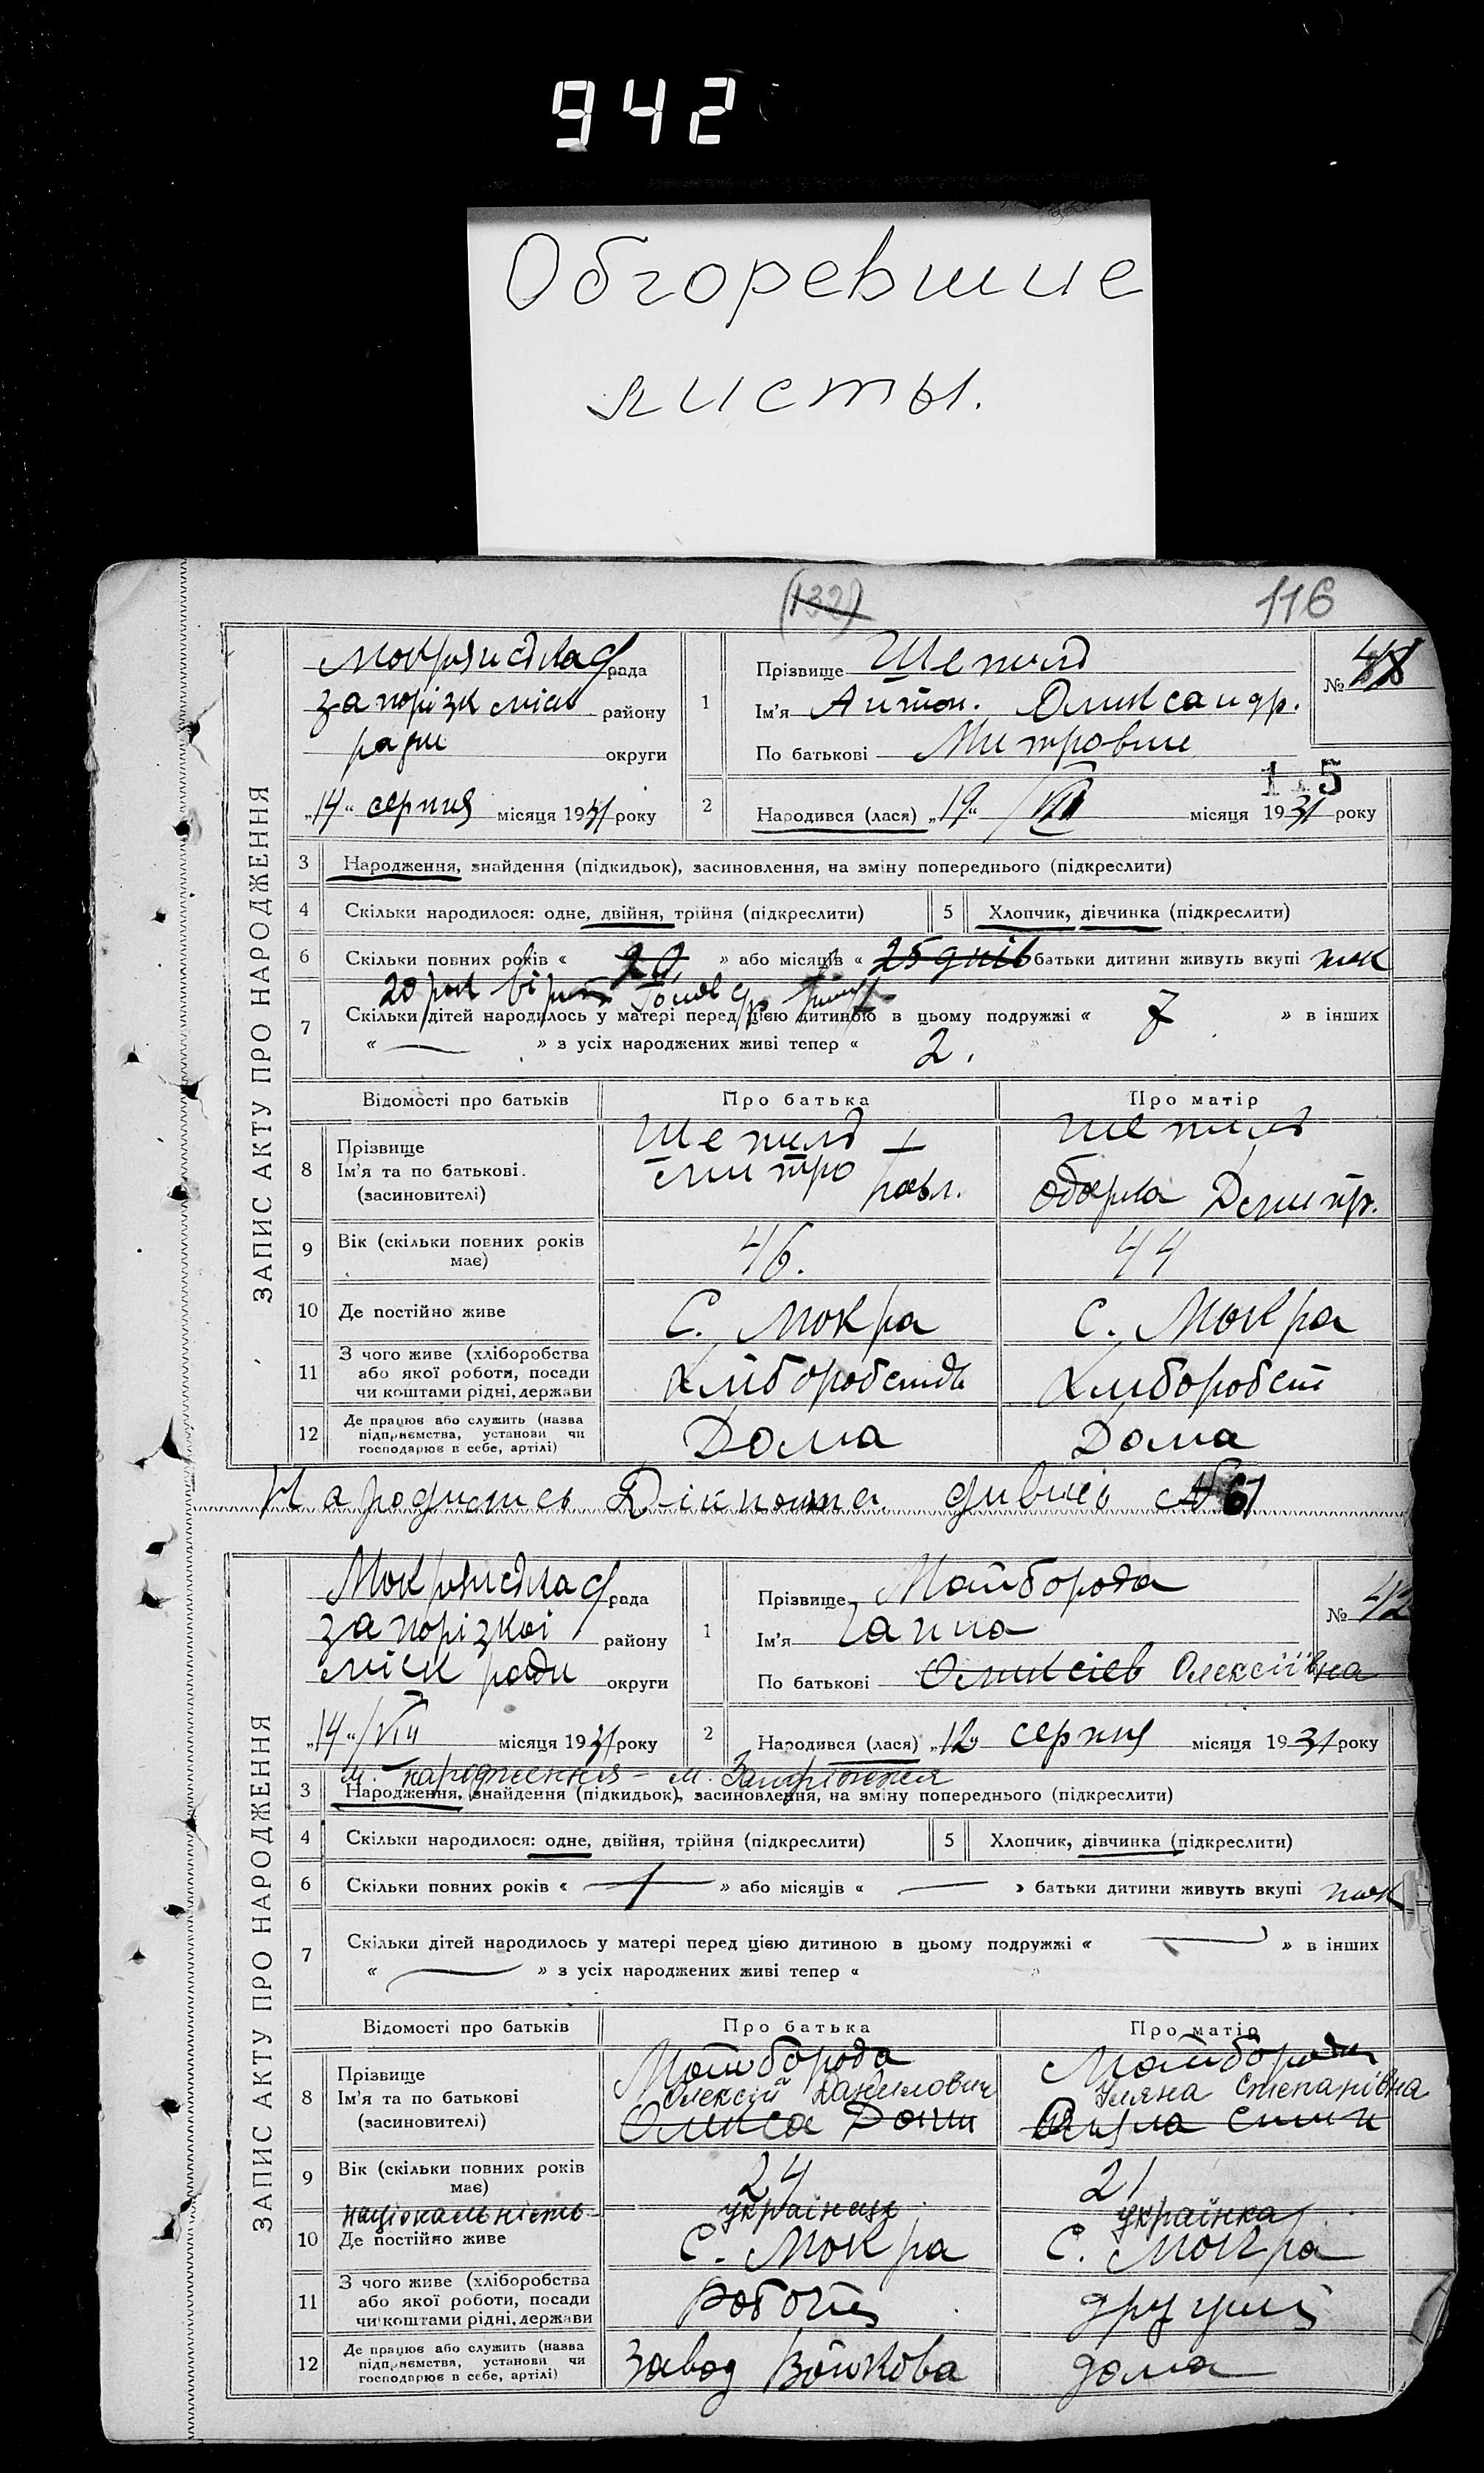 942
Обгоревшие
листы.
(132)
116
ЗАПИС АКТУ ПРО НАРОДЖЕННЯ
рада
запорізк міськ району
ради округи
„14“ серпня місяця 1931 року
1
Прізвище
Ім'я Антон. Олександр.
По батькові Митрович
№
115
2
Народився (лася) „19“ /VII місяця 1931 року
3 Народження, знайдення (підкидьок), засиновлення, на зміну попереднього (підкреслити)
4 Скільки народилося: одне, двійня, трійня (підкреслити)
5 Хлопчик, дівчинка (підкреслити)
6 Скільки повних років « 20 » або місяців « 25 днів батьки дитини живуть вкупі так
20
7 Скільки дітей народилось у матері перед цією дитиною в цьому подружжі « 7 » в інших
« — » з усіх народжених живі тепер « 2. »
Відомості про батьків
Про батька
Про матір
8 Прізвище
Ім'я та по батькові.
(засиновителі)
Дмитро Павл.
Одарка Дмитр.
9 Вік (скільки повних років
має)
46.
44
10 Де постійно живе
С. Мокра
С. Мокра
11 З чого живе (хліборобства
або якої роботи, посади
чи коштами рідні, держави
Хліборобство
Хлібороbст
12 Де працює або служить (назва
підприємства, установи чи
господарює в себе, артілі)
Дома
Дома
Народилась Двійнята дивись № 61
ЗАПИС АКТУ ПРО НАРОДЖЕННЯ
рада
запорізкої району
міськ ради округи
„14“ /VIII місяця 1931 року
1
Прізвище Майборода
Ім'я Ганна
По батькові Олексіїв Олексіївна
№ 42
2
Народився (лася) „12“ серпня місяця 1931 року
м. народження – м. Запоріжжя
3 Народження, знайдення (підкидьок), засиновлення, на зміну попереднього (підкреслити)
4 Скільки народилося: одне, двійня, трійня (підкреслити)
5 Хлопчик, дівчинка (підкреслити)
6 Скільки повних років « 1 » або місяців « — » батьки дитини живуть вкупі так
7 Скільки дітей народилось у матері перед цією дитиною в цьому подружжі « — » в інших
« — » з усіх народжених живі тепер « »
Відомості про батьків
Про батька
Про матір
8 Прізвище
Ім'я та по батькові
(засиновителі)
Майборода
Олексій Данилович
Майборода
Уляна Степанівна
9 Вік (скільки повних років
має)
24
21
національність
українець
українка
10 Де постійно живе
С. Мокра
С. Мокра
11 З чого живе (хліборобства
або якої роботи, посади
чи коштами рідні, держави
12 Де працює або служить (назва
підприємства, установи чи
господарює в себе, артілі)
Завод Войкова
дома